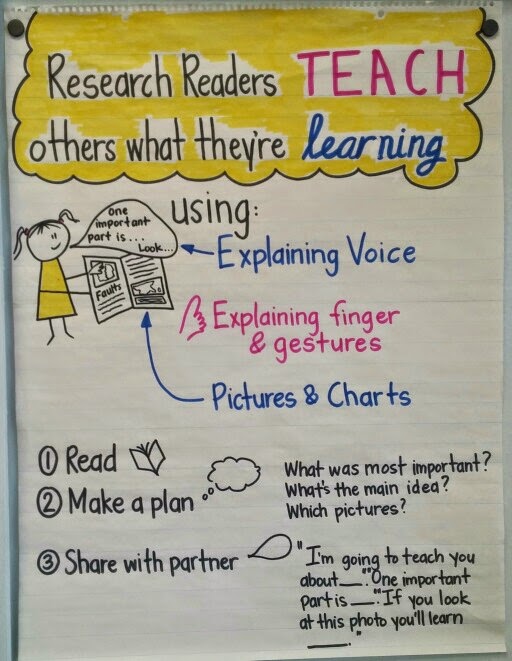 Research Readers TEACH
others what they're learning
using:
One
important
part is...
Look...
Faults
Explaining Voice
Explaining finger
& gestures
Pictures & Charts
① Read
② Make a plan
What was most important?
What's the main idea?
Which pictures?
③ Share with partner
"I'm going to teach you
about___." "One important
part is ___." "If you look
at this photo you'll learn
___."